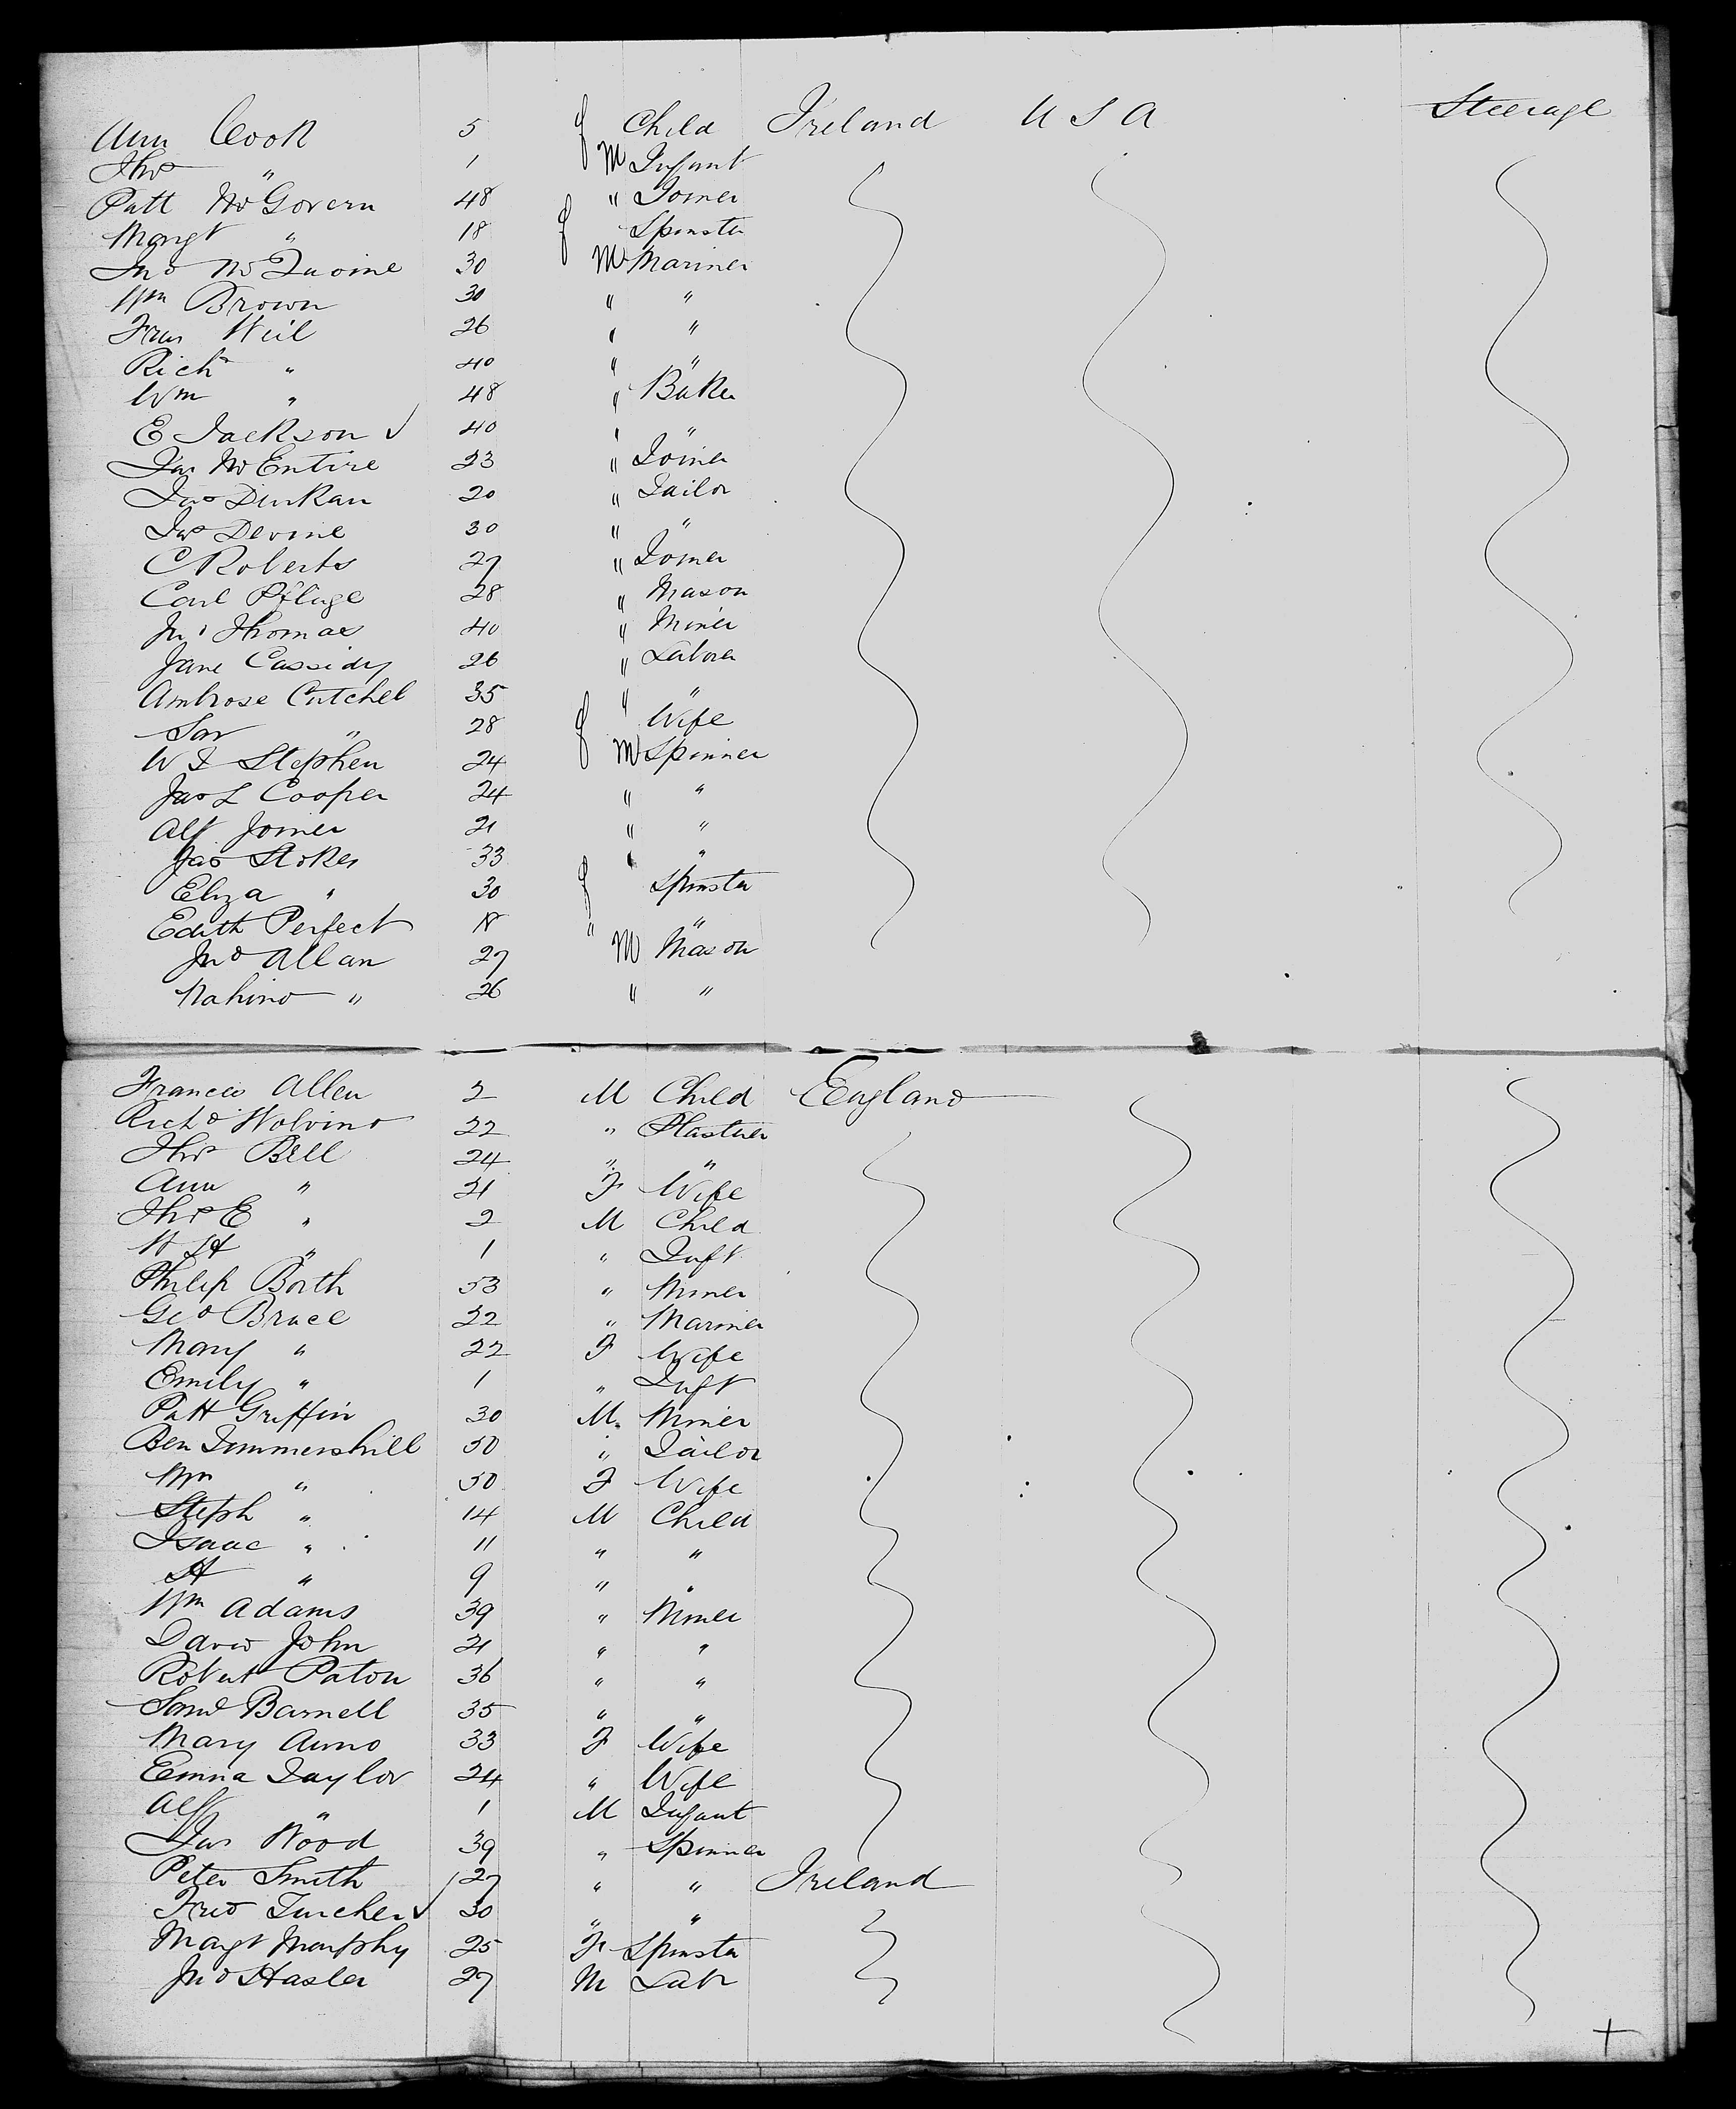 Ann Cook 5 f Child Ireland U S A Steerage
Thos " 1 M Infant
Patt McGovern 48 " Joiner
Margt " 18 f Spinster
Jno 30 M Mariner
Wm Brown 30 " "
Fras Weil 26 " "
Richd " 40 " "
Wm " 48 " Baker
E Jackson ✓ 40 " "
Jas McEntire 23 " Joiner
Jas Dunkan 20 " Tailor
Jas Devine 30 " "
C Roberts 27 " Joiner
Carl Pfluge 28 " Mason
Jno Thomas 40 " Miner
Jane Cassidy 26 " Laborer
Ambrose Cutchel 35 " "
Sar " 28 f Wife
W J Stephen 24 M Spinner
Jas L Cooper 24 " "
Alf Joiner 21 " "
Jas Stokes 33 " "
Eliza " 30 f Spinster
Edith Perfect 18 " "
Jno Allan 27 M Mason
" 26 " "
Frances Allen 2 M Child England
Richd 22 " Plasterer
Thos Bell 24 " "
Ann " 21 F Wife
Thos E " 2 M Child
W H " 1 " Inft
Philip Borth 53 " Miner
Geo Brace 22 " Mariner
Mary " 22 F Wife
Emily " 1 " Inft
Patt Griffin 30 M. Miner
Ben Summershill 50 " Tailor
Mrs " 50 F Wife
Steph " 14 M Child
Isaac " 11 " "
H " 9 " "
Wm Adams 39 " Miner
David John 21 " "
Robert Paton 36 " "
Saml Barnell 35 " "
Mary 33 F Wife
Emma Taylor 24 " Wife
Alf " 1 M Infant
Jas Wood 39 " Spinner
Peter Smith 27 " " Ireland
Fred Turcher ✓ 30 " "
Margt Murphy 25 F Spinster
Jno Hasler 27 M Labr
+